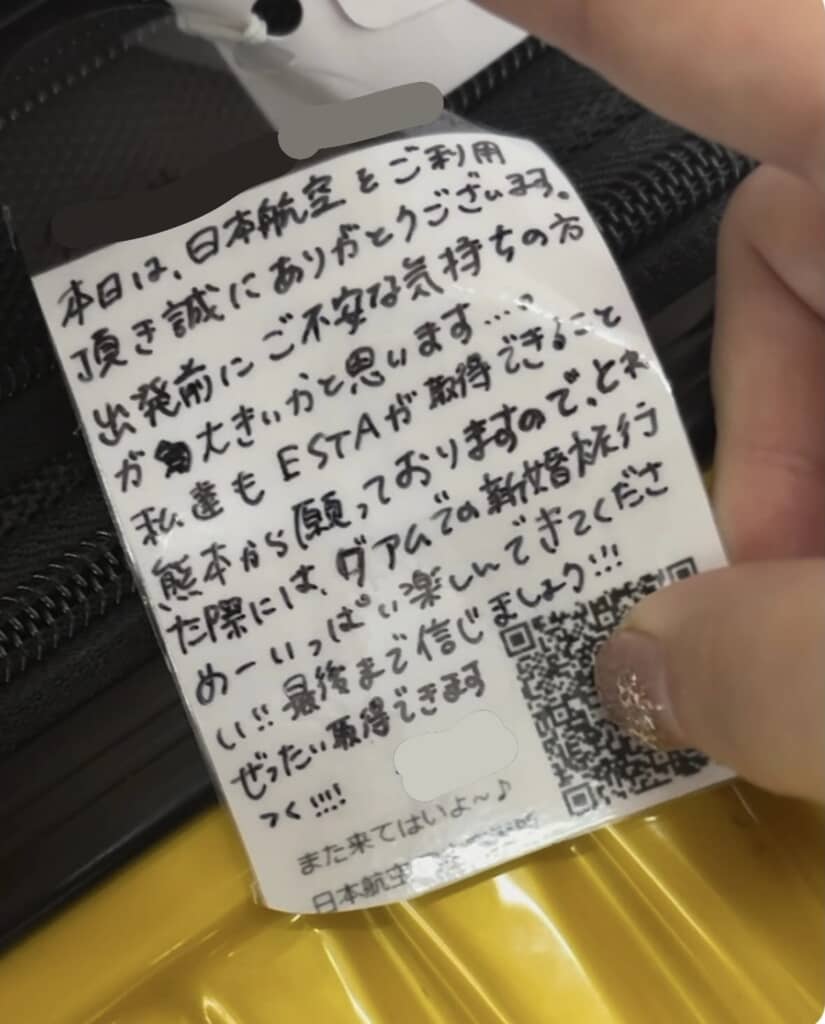 本日は、日本航空をご利用
頂き誠にありがとうございます。
出発前にご不安な気持ちの方
が大きいかと思います…。
私達もESTAが取得できること
熊本から願っておりますので、とれ
た際には、グアムでの新婚旅行
めーいっぱい楽しんできてくださ
い!! 最後まで信じましょう!!!
ぜったい取得できます
つく!!!!
また来てはいよ～♪
日本航空